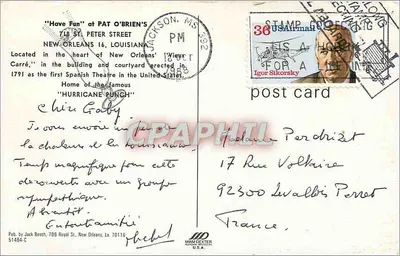 "Have Fun" at PAT O'BRIEN'S
718 ST. PETER STREET
NEW ORLEANS 16, LOUISIANA
Located in the heart of New Orleans' "Vieux
Carré," in the building and courtyard erected in
1791 as the first Spanish Theatre in the United States.
Home of the famous
"HURRICANE PUNCH"
JACKSON, MS 392
PM
OCT
1988
STAMP COLLECTING
IS A HOBBY
FOR A LIFETIME
36 USAirmail
Igor Sikorsky
post card
Chère Gaby
Je vous envoie un peu
la chaleur de la Louisiane.
Temps magnifique pour cette
découverte avec un groupe
sympathique.
A bientôt.
En toute amitié
Madame Perdrizet
17 Rue Voltaire
92300 Levallois Perret
France.
CPAPHIL
Pub. by Jack Beech, 709 Royal St., New Orleans, La. 70116
51484-C
MWM DEXTER